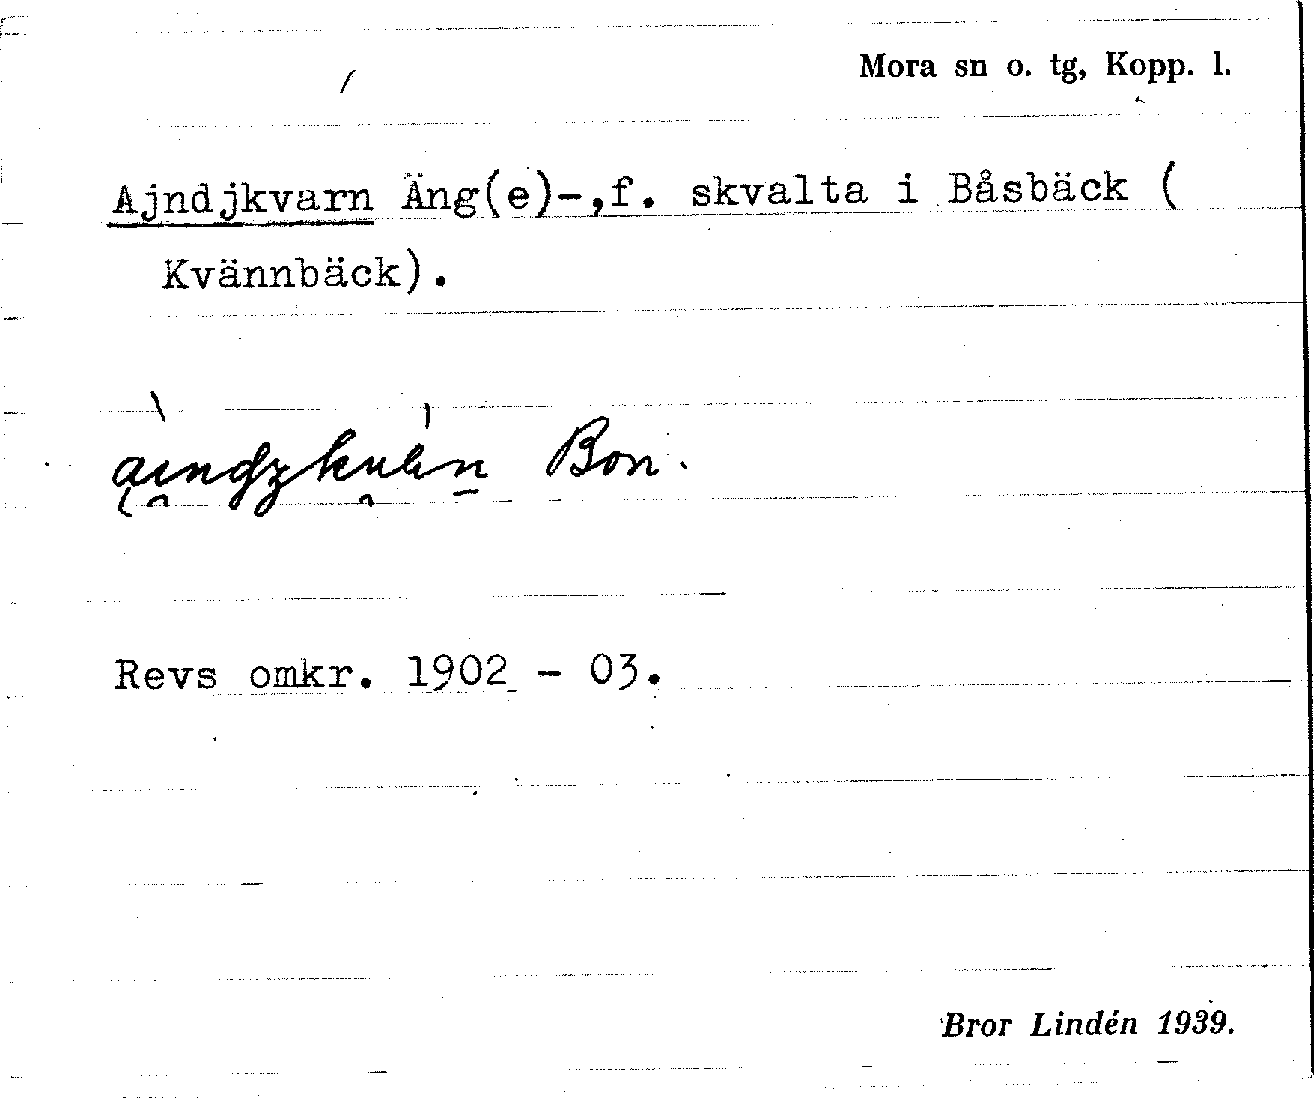 Mora sn o. tg, Kopp. l.
Ajndjkvarn Äng(e)-,f. skvalta i Båsbäck (
Kvännbäck).
Bon.
Revs omkr. 1902 - 03.
Bror Lindén 1939.